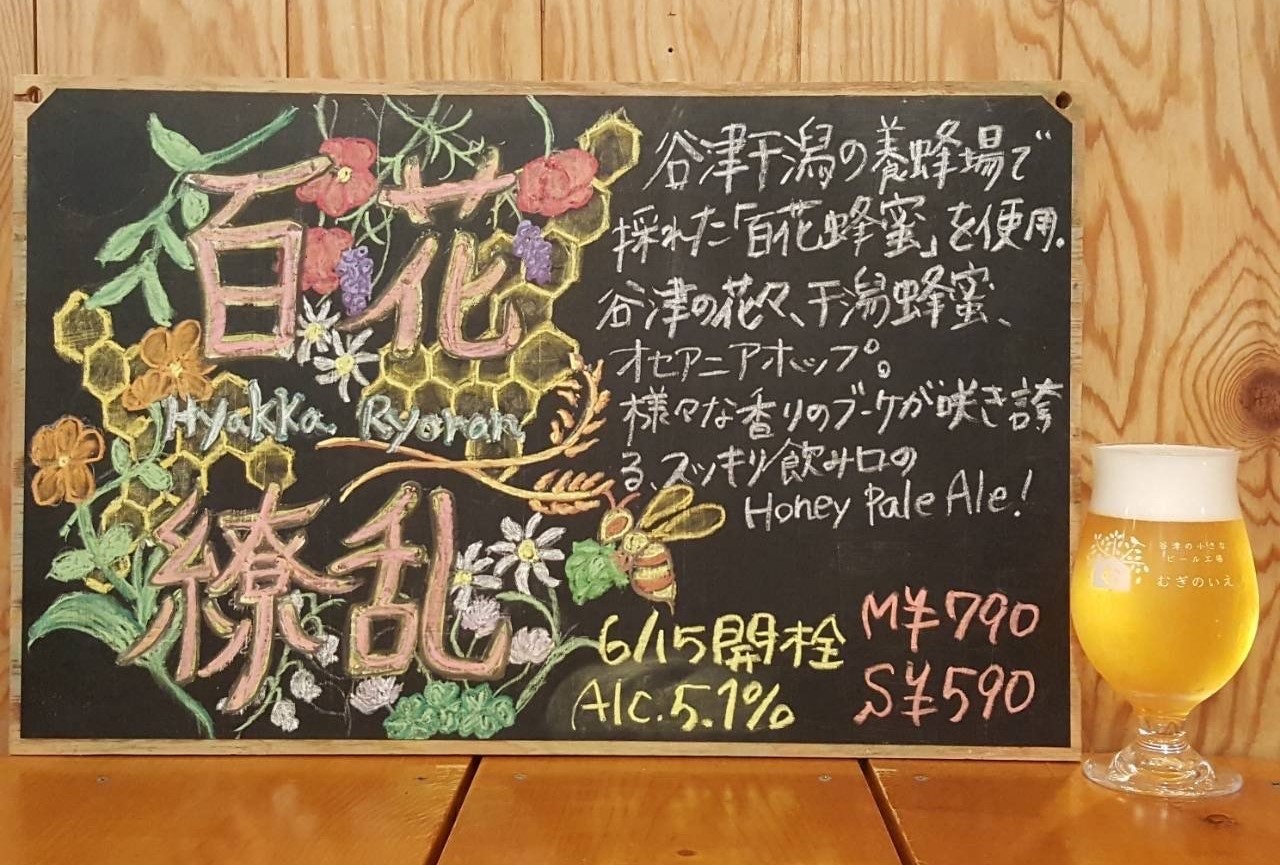 百花
Hyakka Ryoran
繚乱
谷津干潟の養蜂場で
採れた「百花蜂蜜」を使用.
谷津の花々、干潟蜂蜜、
オセアニアホップ。
様々な香りのブーケが咲き誇
る、スッキリ飲み口の
Honey Pale Ale!
6/15開栓
Alc.5.1%
M¥790
S¥590
谷津の小さな
ビール工場
むぎのいえ